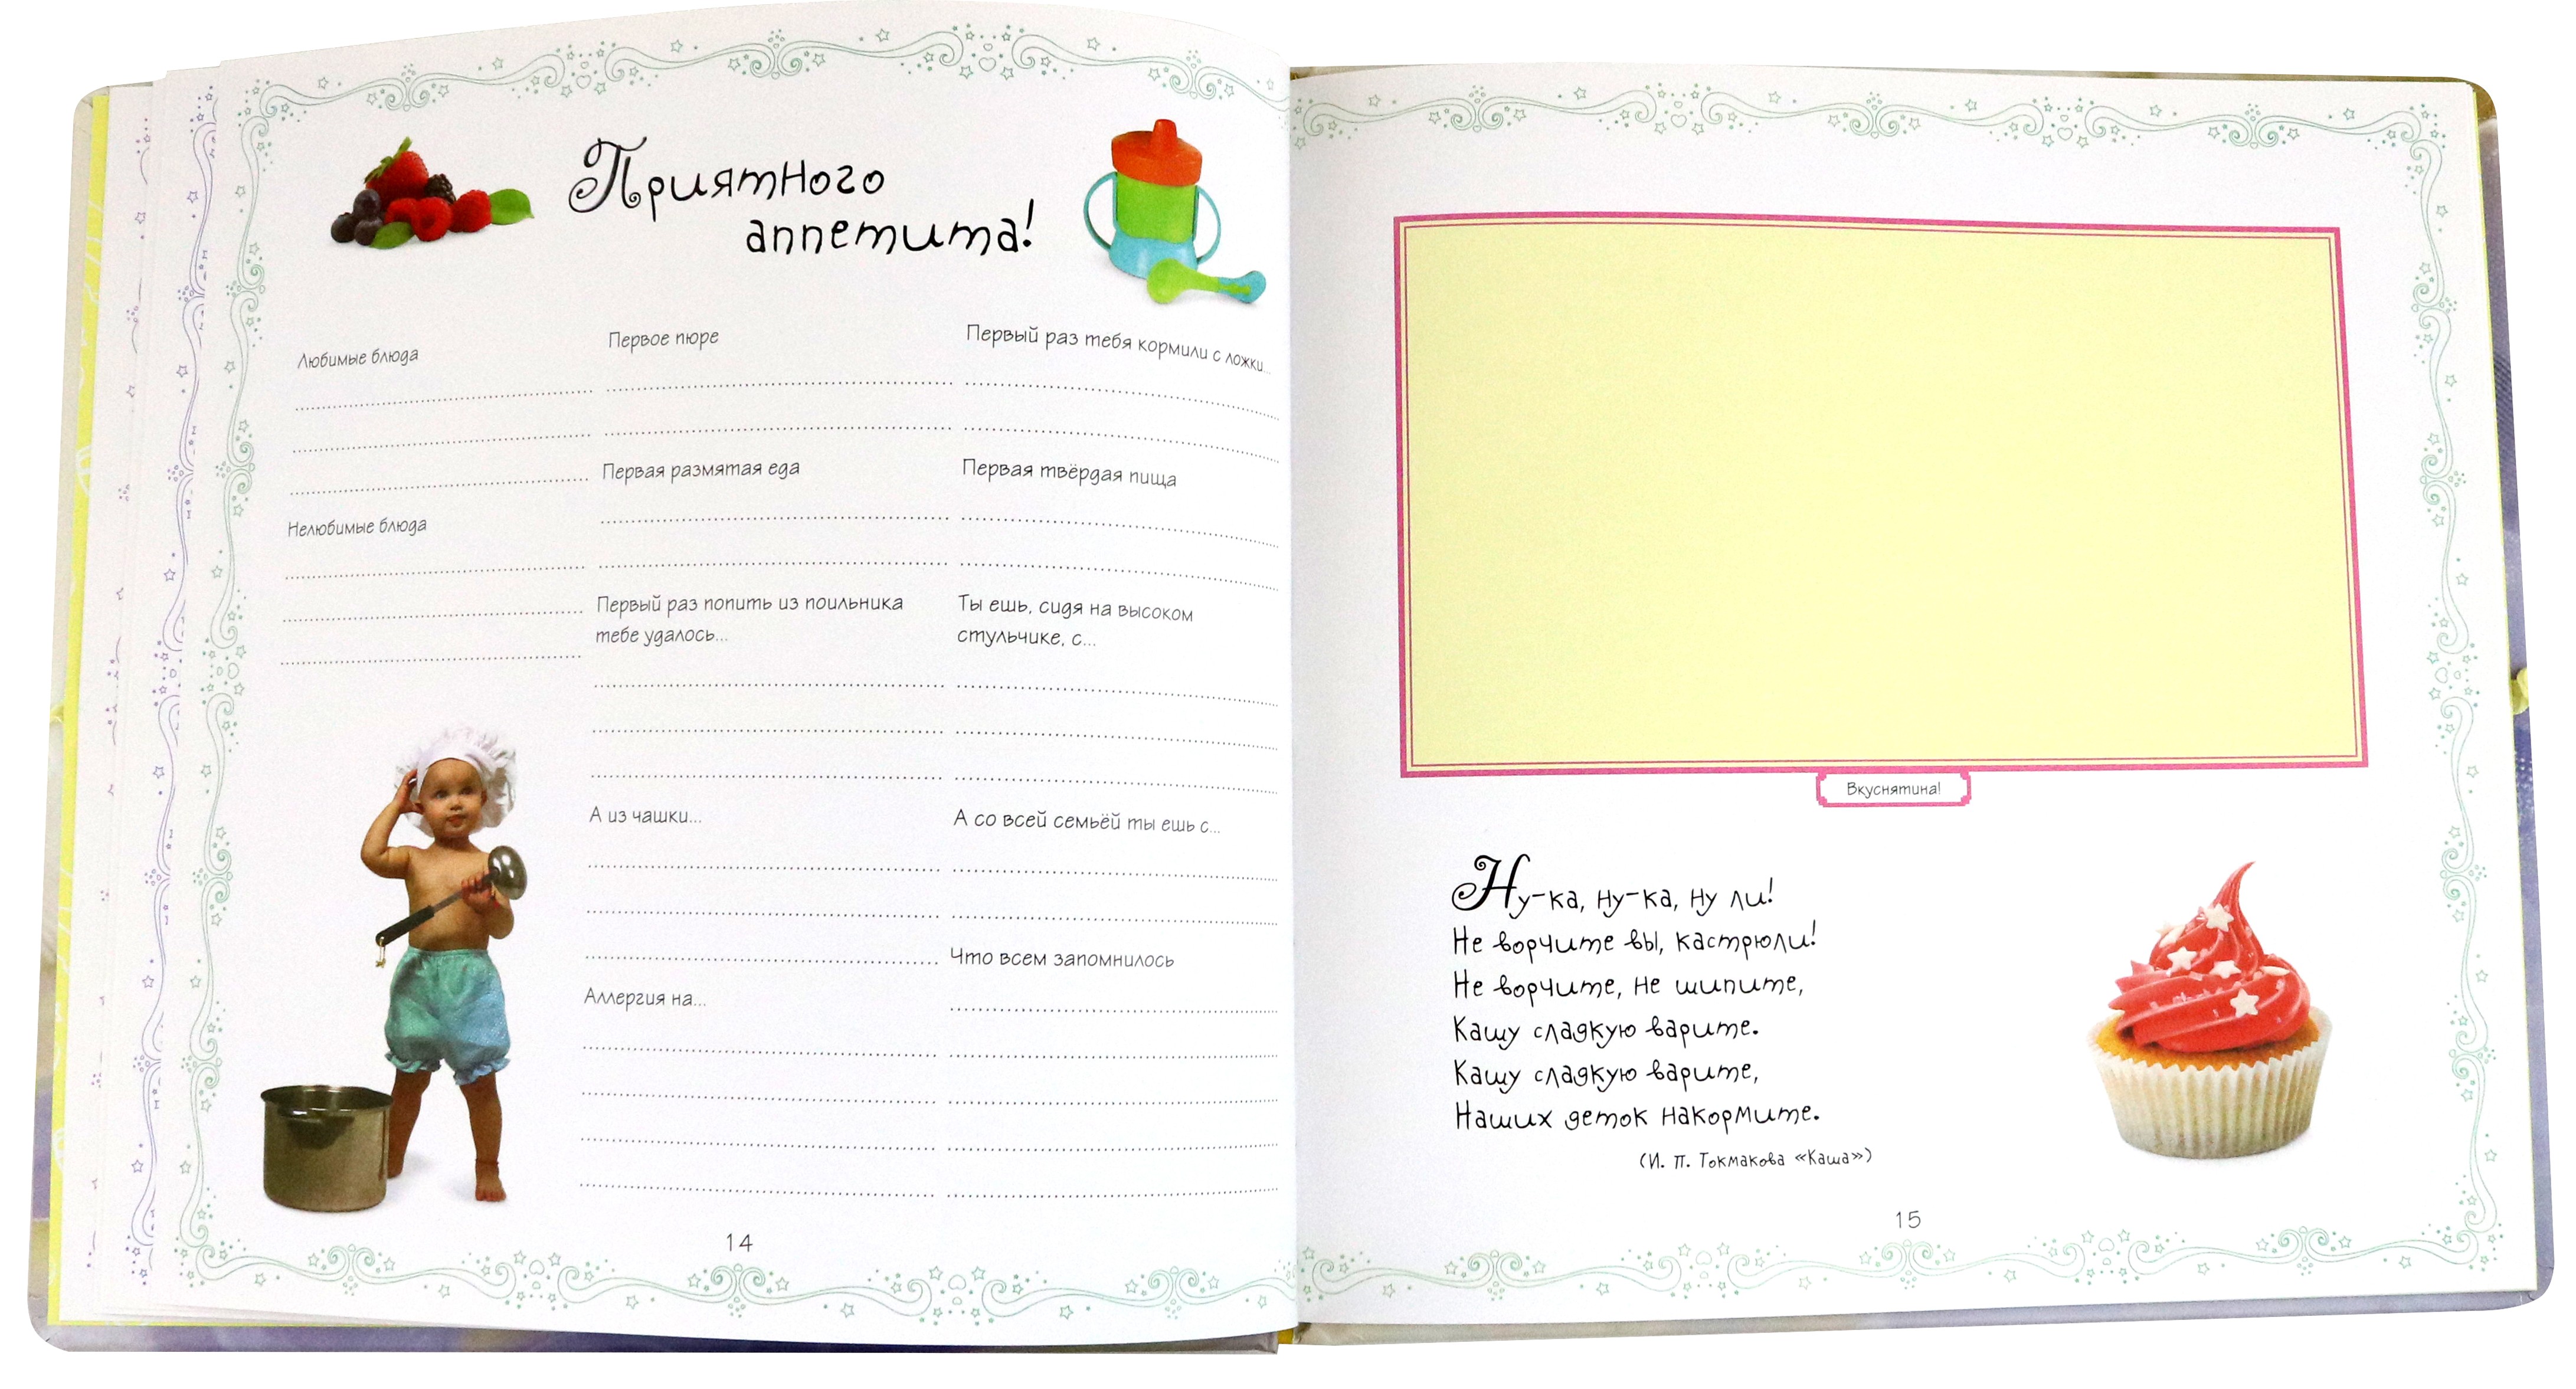 Приятного
аппетита!
Любимые блюда
Нелюбимые блюда
Первое пюре
Первая размятая еда
Первый раз попить из поильника
тебе удалось...
А из чашки...
Аллергия на...
Первый раз тебя кормили с ложки...
Первая твёрдая пища
Ты ешь, сидя на высоком
стульчике, с...
А со всей семьёй ты ешь с...
Что всем запомнилось
14
Вкуснятина!
Ну-ка, ну-ка, ну ли!
Не ворчите вы, кастрюли!
Не ворчите, не шипите,
Кашу сладкую варите.
Кашу сладкую варите,
Наших деток накормите.
(И. П. Токмакова «Каша»)
15